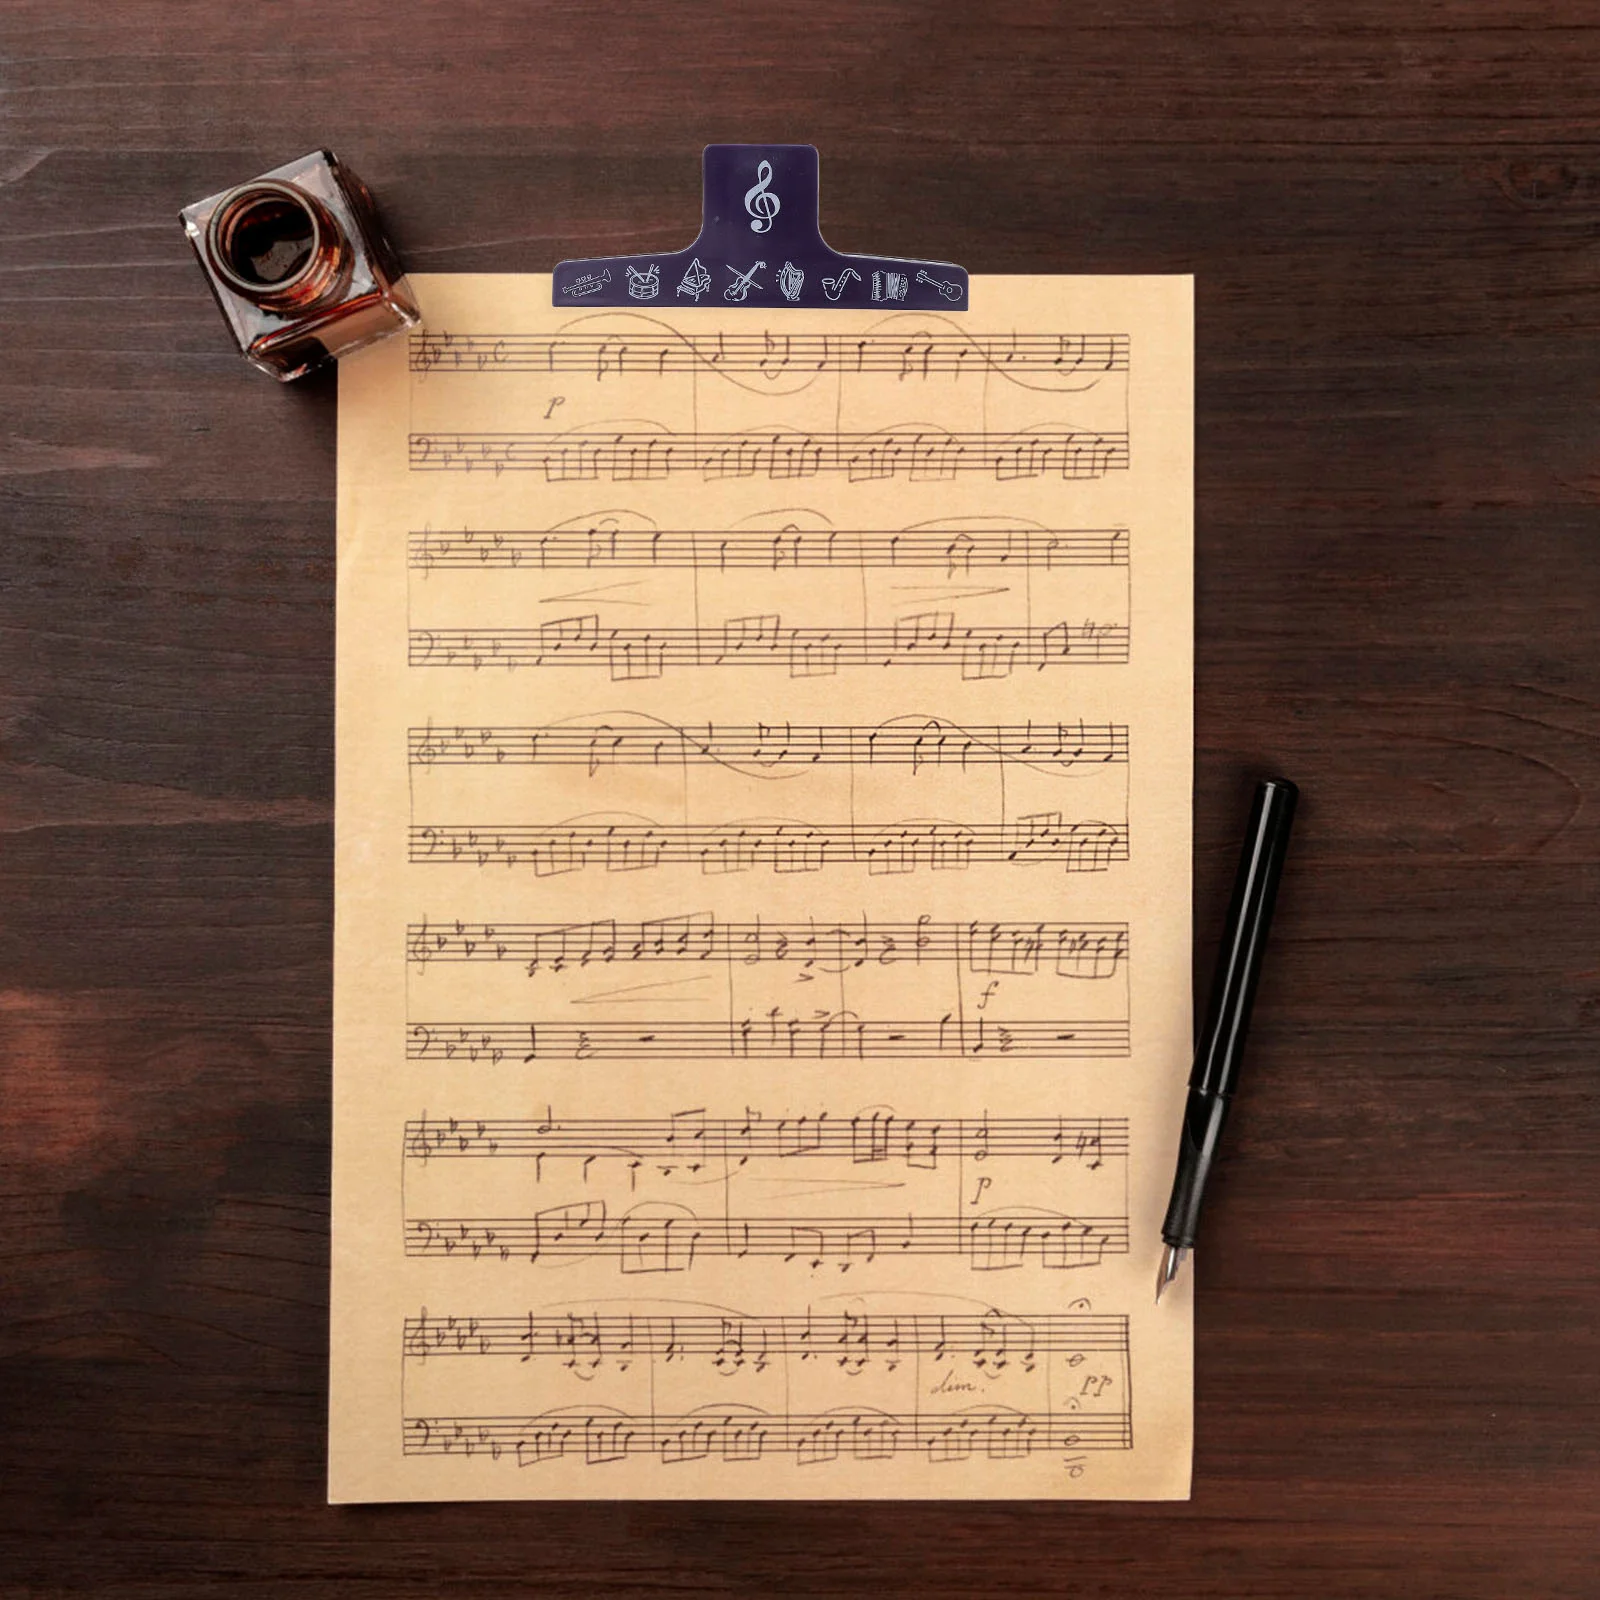 p
f
p
dim.
pp